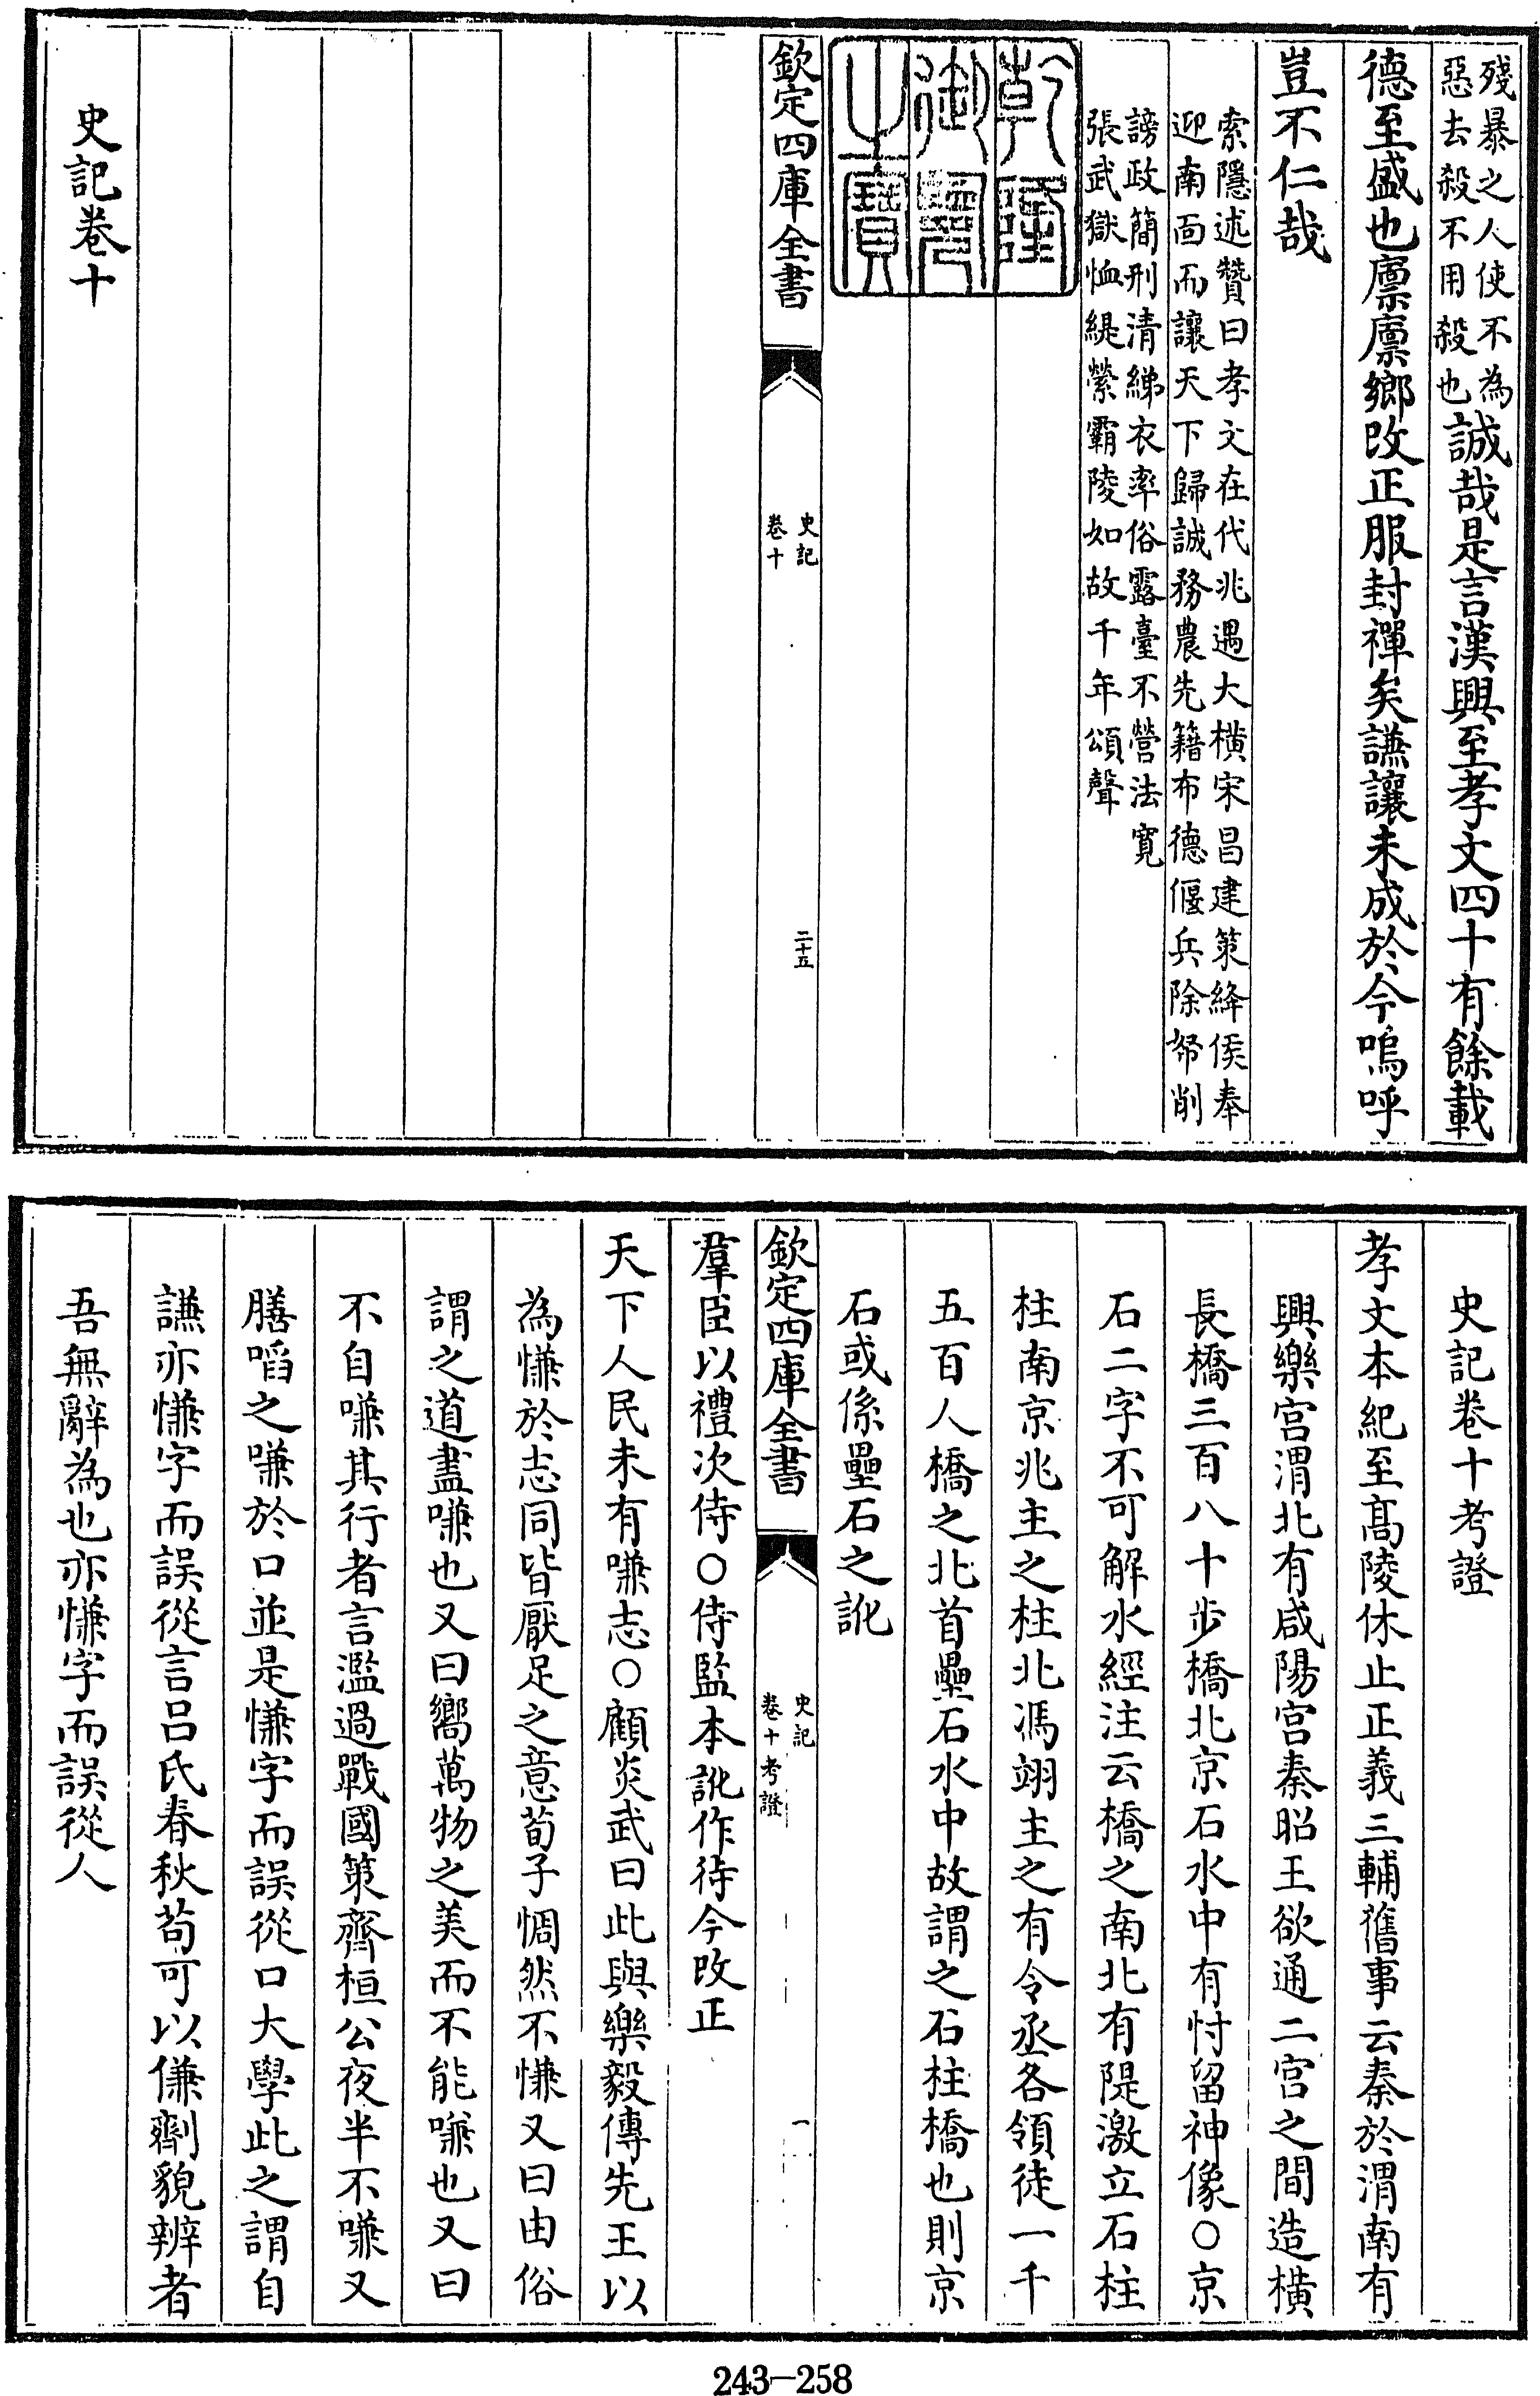 殘暴之人使不為
惡去殺不用殺也
誠哉是言漢興至孝文四十有餘載
德至盛也廩廩鄉改正服封禪矣謙讓未成於今嗚呼
豈不仁哉
索隱述贊曰孝文在代兆遇大橫宋昌建策絳侯奉
迎南面而讓天下歸誠務農先籍布德偃兵除帑削
謗政簡刑清綈衣率俗露臺不營法寬
張武獄恤緹縈霸陵如故千年頌聲
乾隆
御覽
之寶
欽定四庫全書
史記
卷十
二十五
史記卷十
史記卷十考證
孝文本紀至髙陵休止正義三輔舊事云秦於渭南有
興樂宫渭北有咸陽宫秦昭王欲通二宫之間造橫
長橋三百八十步橋北京石水中有忖留神像○京
石二字不可解水經注云橋之南北有隄激立石柱
柱南京兆主之柱北馮翊主之有令丞各領徒一千
五百人橋之北首壘石水中故謂之石柱橋也則京
石或係壘石之訛
欽定四庫全書
史記
卷十考證
一
羣臣以禮次侍○侍監本訛作待今改正
天下人民未有嗛志○顧炎武曰此與樂毅傳先王以
為慊於志同皆厭足之意荀子惆然不慊又曰由俗
謂之道盡嗛也又曰嚮萬物之美而不能嗛也又曰
不自嗛其行者言濫過戰國策齊桓公夜半不嗛又
膳㗖之嗛於口並是慊字而誤從口大學此之謂自
謙亦慊字而誤從言吕氏春秋苟可以傔劑貌辨者
吾無辭為也亦慊字而誤從人
243-258